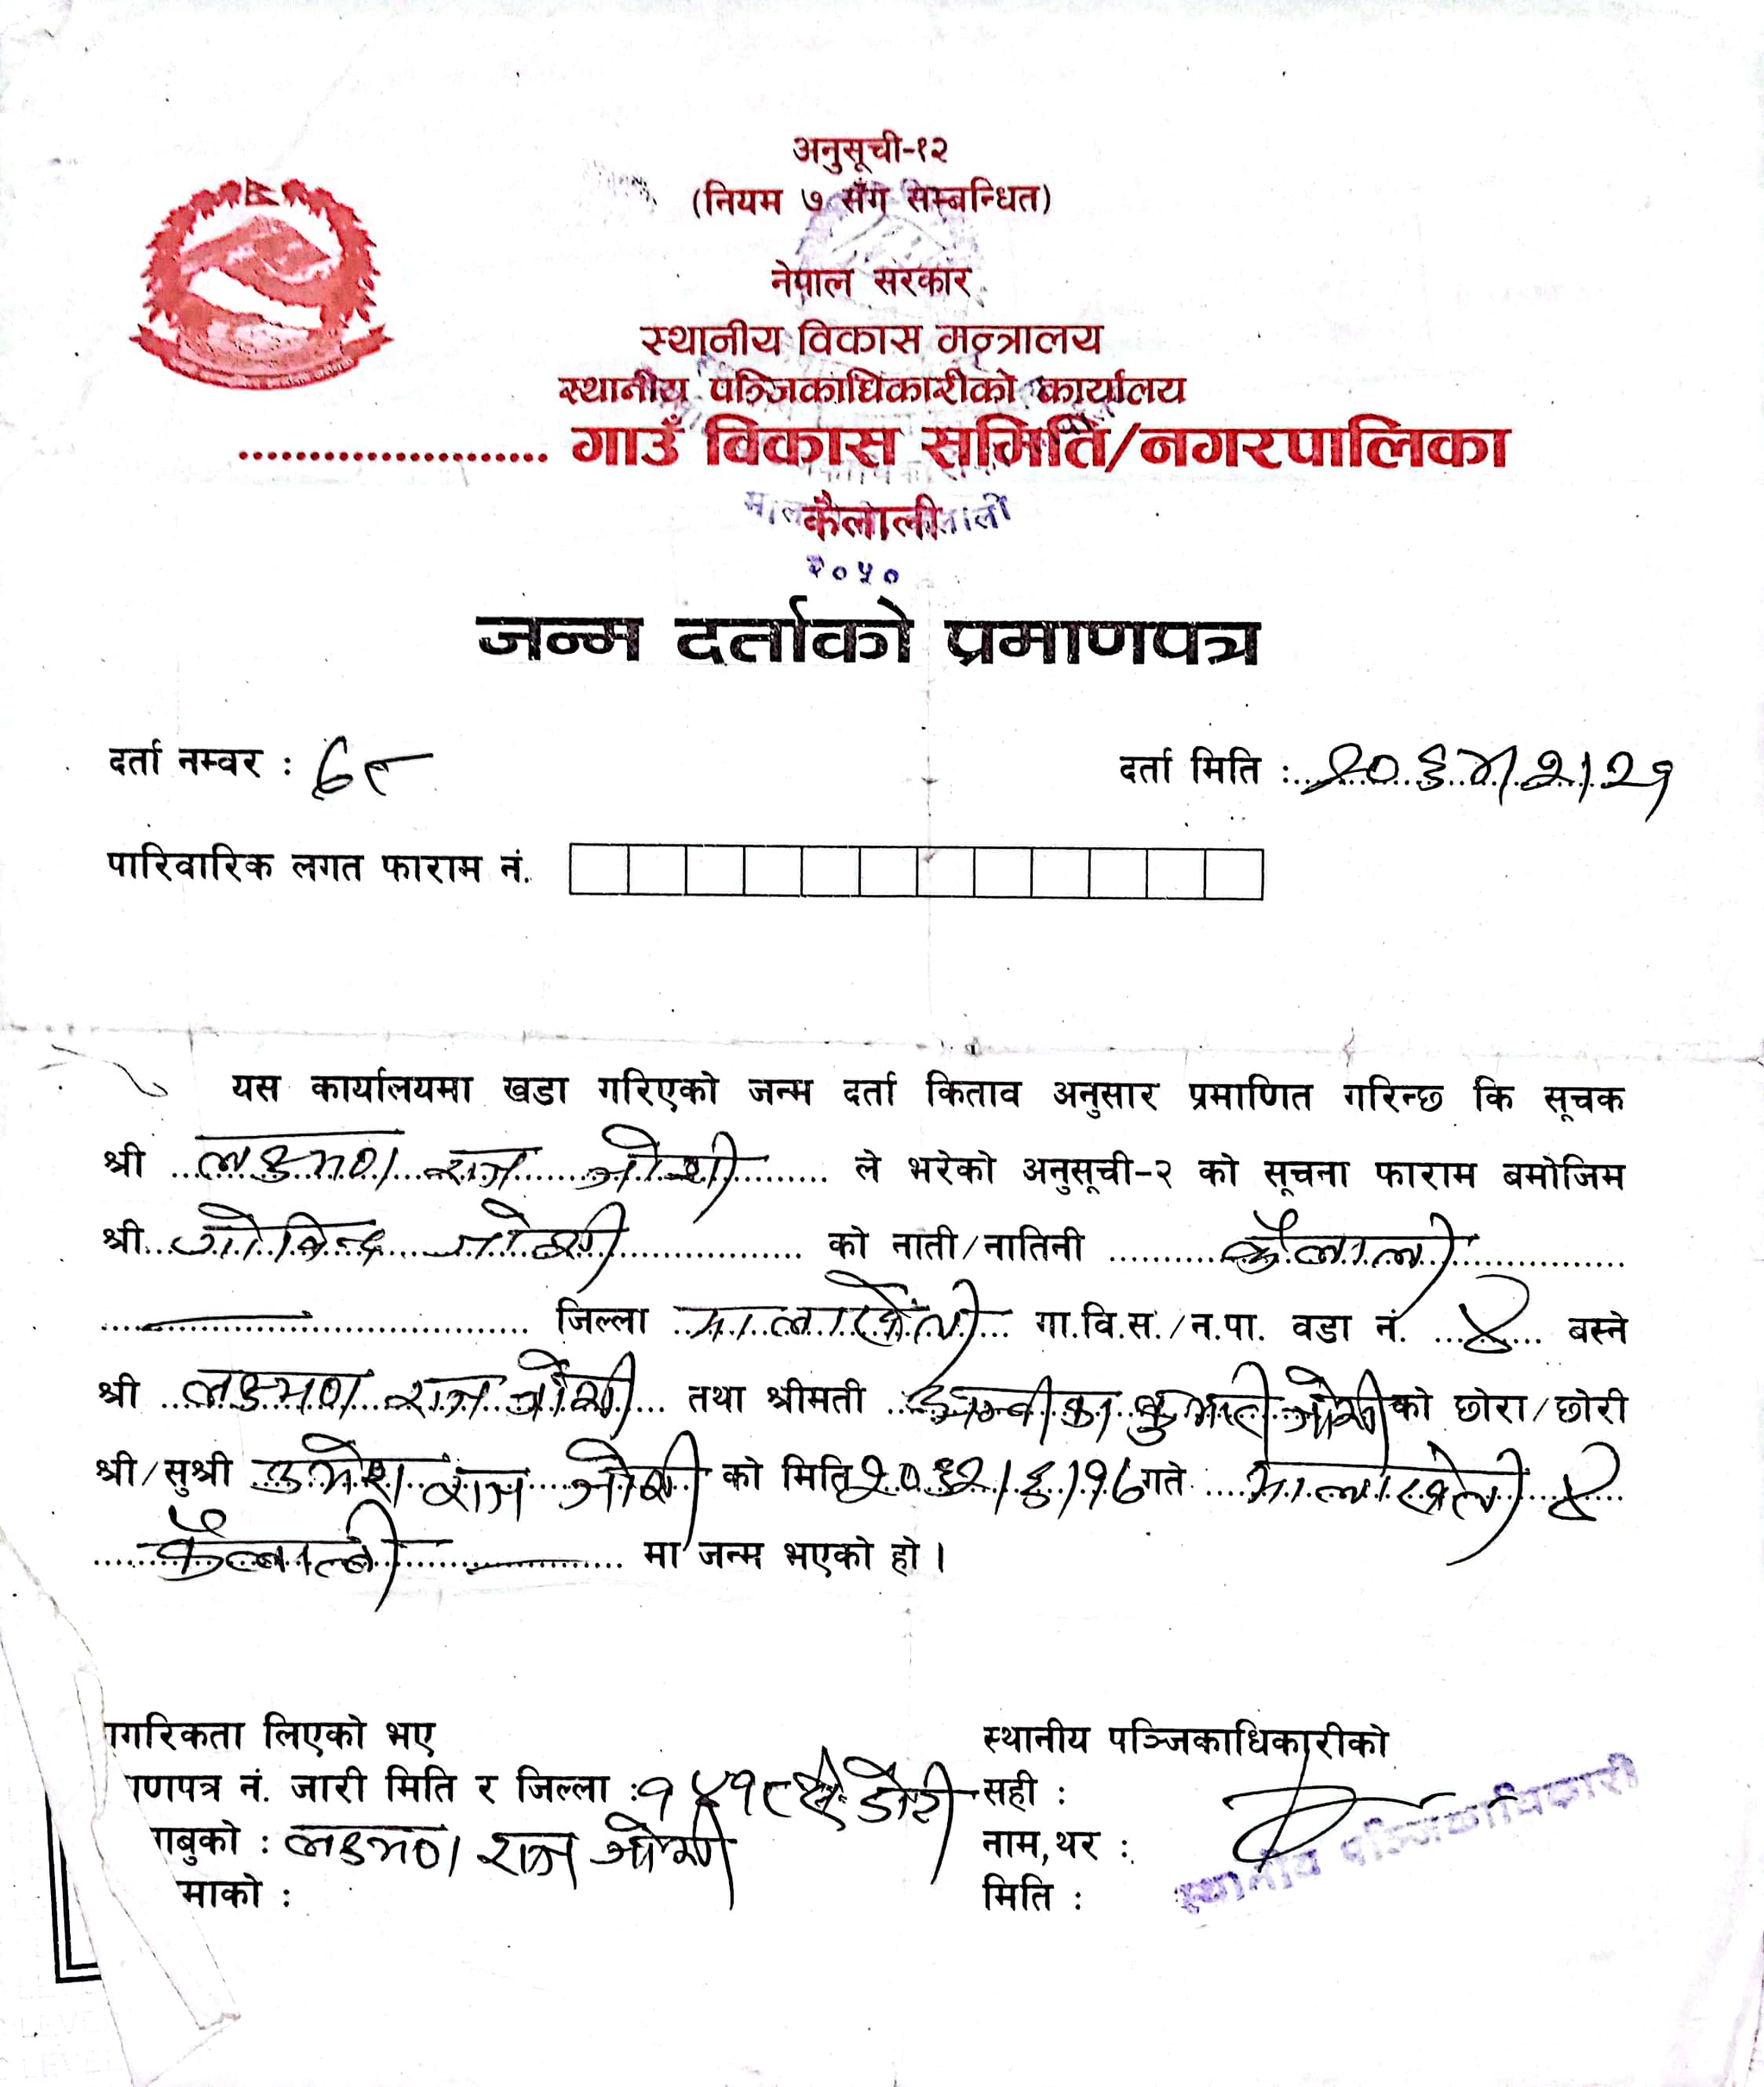 अनुसूची-१२
(नियम ७ सँग सम्बन्धित)
नेपाल सरकार
स्थानीय विकास मन्त्रालय
स्थानीय पञ्जिकाधिकारीको कार्यालय
...................... गाउँ विकास समिति/नगरपालिका
कैलाली
२०५०
जन्म दर्ताको प्रमाणपत्र
दर्ता नम्बर : ६८ दर्ता मिति :
पारिवारिक लगत फाराम नं.
यस कार्यालयमा खडा गरिएको जन्म दर्ता किताव अनुसार प्रमाणित गरिन्छ कि सूचक
श्री लक्ष्मण राज जोशी ले भरेको अनुसूची-२ को सूचना फाराम बमोजिम
श्री गोविन्द जोशी को नाती/नातिनी कैलाली
जिल्ला मालाखेती गा.वि.स./न.पा. वडा नं. ४ बस्ने
श्री लक्ष्मण राज जोशी तथा श्रीमती कुमारी जोशी को छोरा/छोरी
श्री/सुश्री उमेश राज जोशी को मिति गते मालाखेती ४
कैलाली मा जन्म भएको हो ।
ागरिकता लिएको भए
ाणपत्र नं. जारी मिति र जिल्ला :
ाबुको : लक्ष्मण राज जोशी
माको :
स्थानीय पञ्जिकाधिकारीको
सही :
नाम,थर :
मिति :
स्थानीय पञ्जिकाधिकारी